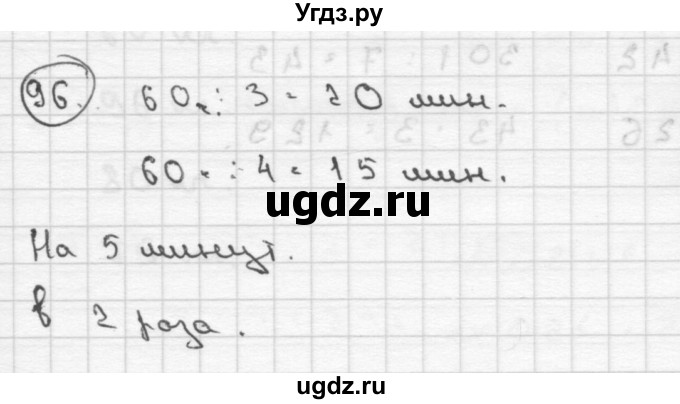 Угдз.ру
96. 60 : 3 = 20 мин.
60 : 4 = 15 мин.
ugdz.ru
На 5 минут.
в 2 раза.
ugdz.ru